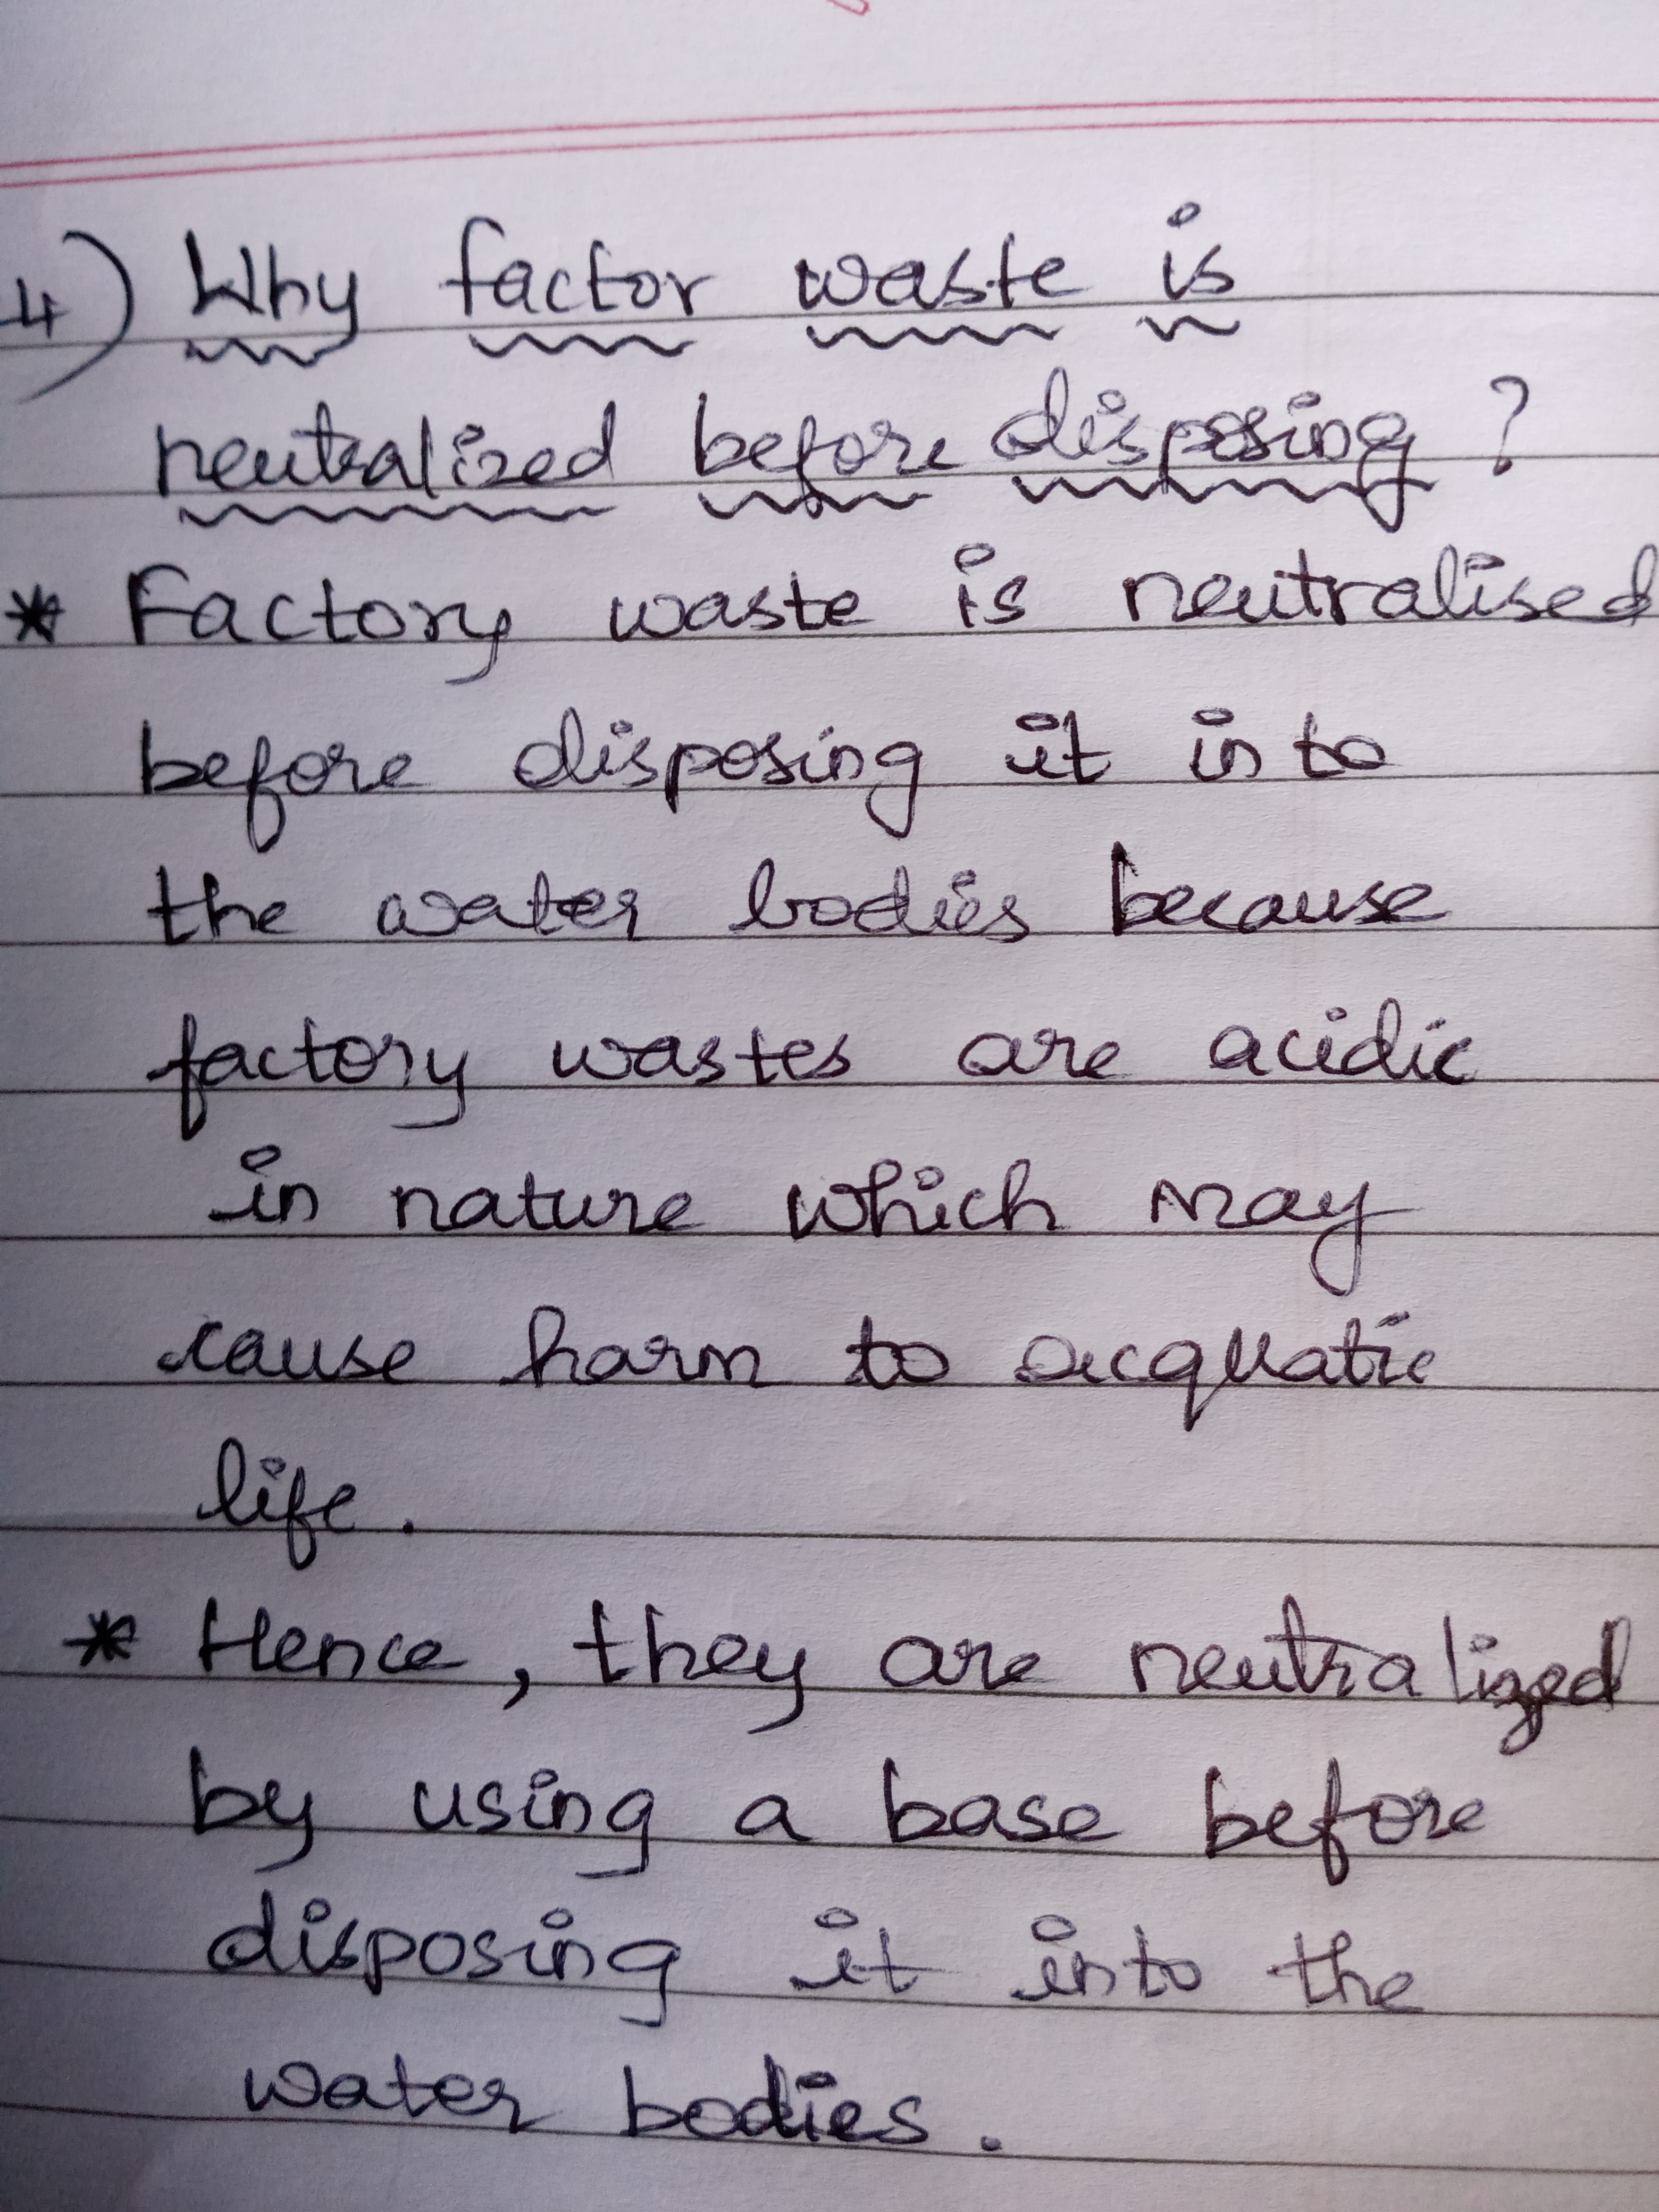 4) Why factor waste is
neutralized before disposing ?
* Factory waste is neutralised
before disposing it into
the water bodies because
factory wastes are acidic
in nature which may
cause harm to acquatic
life.
* Hence, they are neutralized
by using a base before
disposing it into the
water bodies.